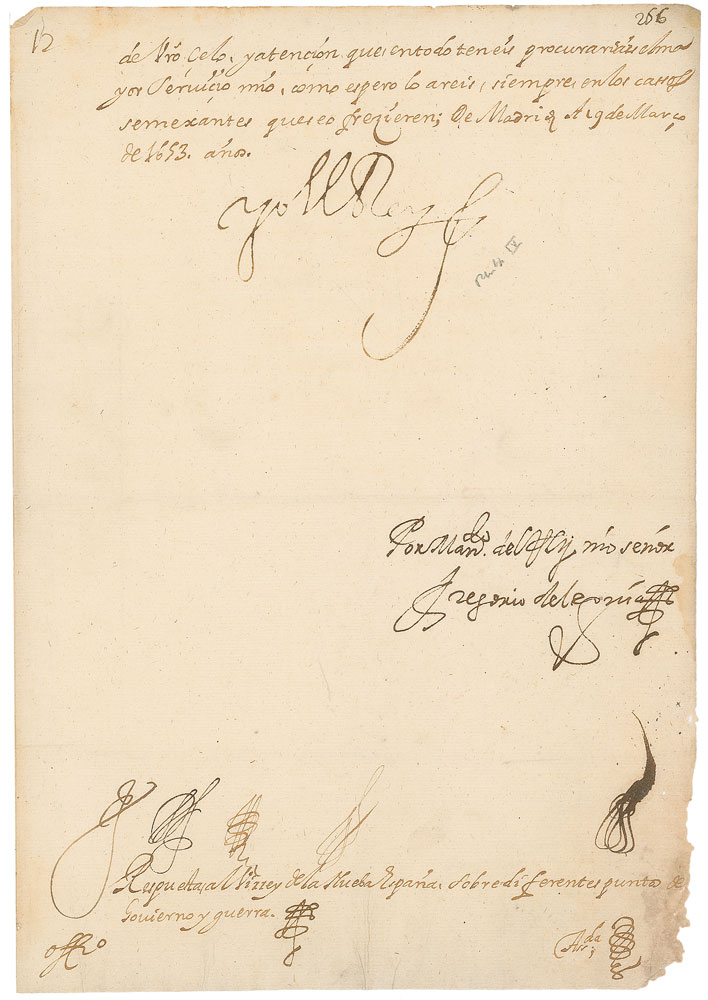 12
266
de Vrō. Celo, y atención que en todo teneis procurarais el ma
yor Seruicio mio, como espero lo areis, siempre, en los cassos
semexantes que se ofreçieren; De Madrid A 19 de Março
de 1653. años.
Yo el Rey
IV
Por Mando. del Rey nrō señor
Gregorio de leguia
Respuesta, al Virrey de la Nueba España, sobre diferentes puntos de
Govierno y guerra.
offo